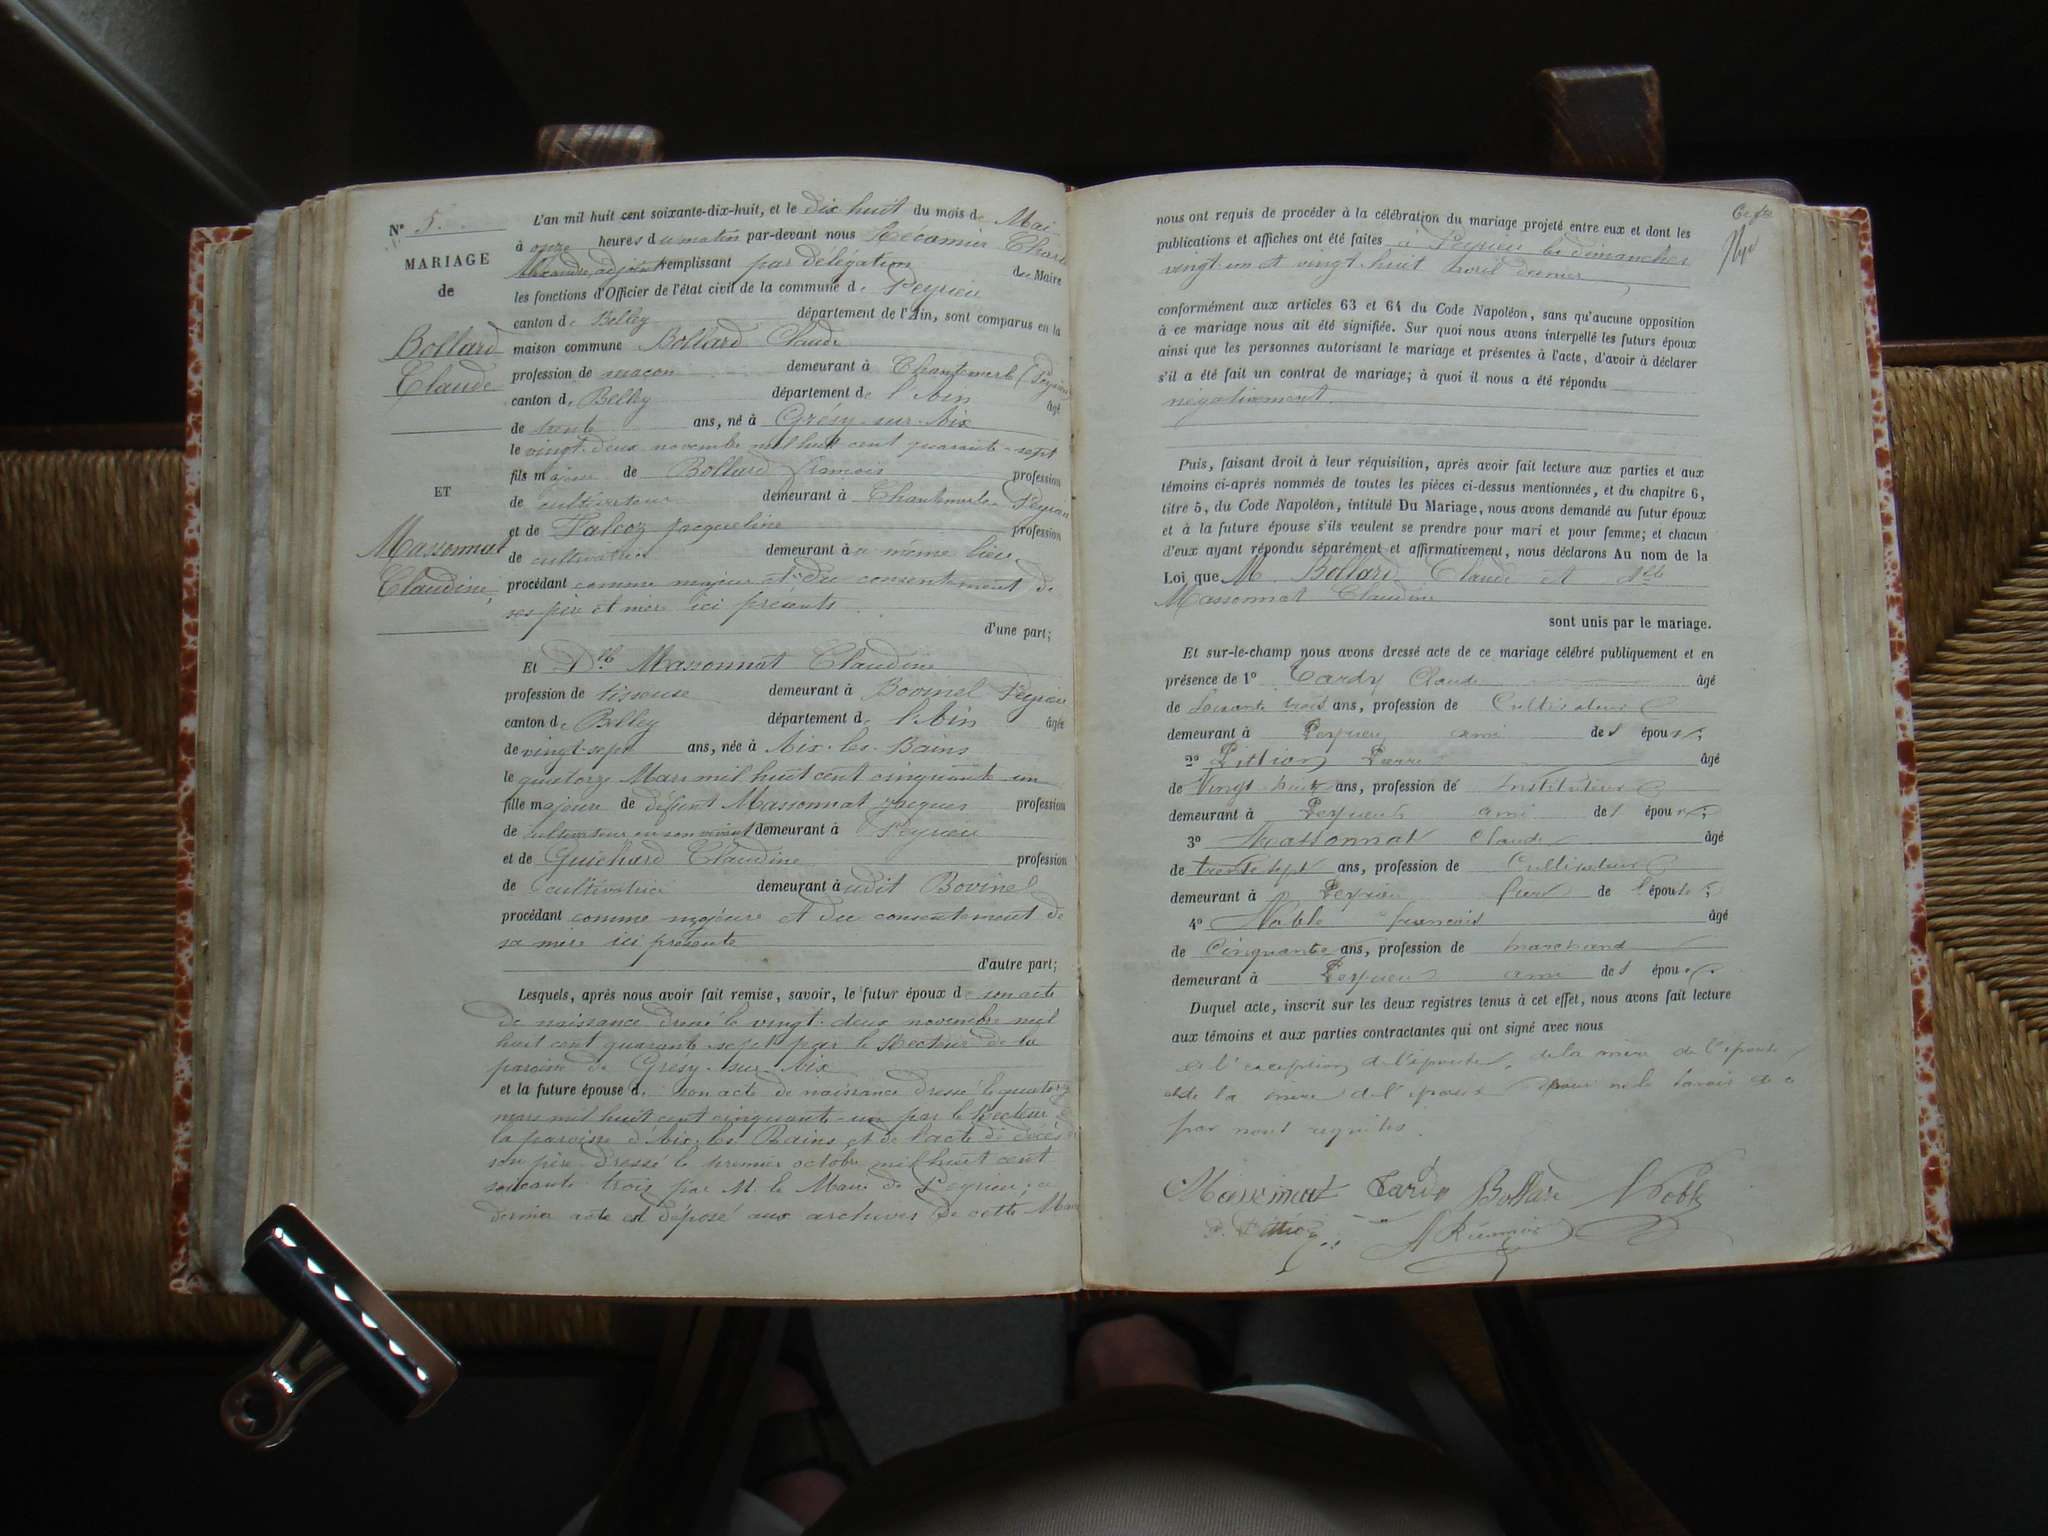 N° 5.
MARIAGE
de
Bollard
Claude
ET
Massonnat
Claudine
L'an mil huit cent soixante-dix-huit, et le dix huit du mois de Mai
à onze heures du matin par-devant nous Récamier Charles
Alexandre, adjoint remplissant par délégation du Maire
les fonctions d'Officier de l'état civil de la commune de Peyrieu
canton de Belley département de l'Ain, sont comparus en la
maison commune Bollard Claude
profession de maçon demeurant à Chantemerle (Peyrieu
canton de Belley département de l'Ain âgé
de trente ans, né à Grésy-sur-Aix
le vingt-deux novembre mil huit cent quarante-sept
fils majeur de Bollard François profession
de cultivateur demeurant à Chantemerle Peyrieu
et de Falcoz Jacqueline profession
de cultivatrice demeurant à u même lieu
procédant comme majeur et du consentement de
ses père et mère ici présents
d'une part;
Et Dlle Massonnat Claudine
profession de tisseuse demeurant à Bovinel Peyrieu
canton de Belley département de l'Ain âgée
de vingt-sept ans, née à Aix-les-Bains
le quatorze Mars mil huit cent cinquante un
fille majeure de défunt Massonnat Jacques profession
de cultivateur en son vivant demeurant à Peyrieu
et de Guichard Claudine profession
de cultivatrice demeurant à udit Bovinel
procédant comme majeure et du consentement de
sa mère ici présente
d'autre part;
Lesquels, après nous avoir fait remise, savoir, le futur époux de son acte
de naissance dressé le vingt-deux novembre mil
huit cent quarante-sept par le Recteur de la
paroisse de Grésy-sur-Aix
et la future épouse de son acte de naissance dressé le quatorze
mars mil huit cent cinquante-un par le Recteur de
la paroisse d'Aix-les-Bains et de l'acte de décès de
son père dressé le premier octobre mil huit cent
soixante trois par M. le Maire de Peyrieu, ce
dernier acte est déposé aux archives de cette Mairie
nous ont requis de procéder à la célébration du mariage projeté entre eux et dont les
publications et affiches ont été faites à Peyrieu les dimanches
vingt-un et vingt-huit avril dernier
conformément aux articles 63 et 64 du Code Napoléon, sans qu'aucune opposition
à ce mariage nous ait été signifiée. Sur quoi nous avons interpellé les futurs époux
ainsi que les personnes autorisant le mariage et présentes à l'acte, d'avoir à déclarer
s'il a été fait un contrat de mariage; à quoi il nous a été répondu
négativement.
Puis, faisant droit à leur réquisition, après avoir fait lecture aux parties et aux
témoins ci-après nommés de toutes les pièces ci-dessus mentionnées, et du chapitre 6,
titre 5, du Code Napoléon, intitulé Du Mariage, nous avons demandé au futur époux
et à la future épouse s'ils veulent se prendre pour mari et pour femme; et chacun
d'eux ayant répondu séparément et affirmativement, nous déclarons Au nom de la
Loi que M. Bollard Claude et Dlle
Massonnat Claudine
sont unis par le mariage.
Et sur-le-champ nous avons dressé acte de ce mariage célébré publiquement et en
présence de 1° Tardy Claude âgé
de Soixante trois ans, profession de Cultivateur
demeurant à Peyrieu ami des époux;
2° Pittion Pierre âgé
de Vingt huit ans, profession de Instituteur
demeurant à Peyrieu ami des époux;
3° Massonnat Claude âgé
de trente sept ans, profession de Cultivateur
demeurant à Peyrieu frère de l'épouse;
4° Noble françois âgé
de Cinquante ans, profession de marchand
demeurant à Peyrieu ami des époux.
Duquel acte, inscrit sur les deux registres tenus à cet effet, nous avons fait lecture
aux témoins et aux parties contractantes qui ont signé avec nous
à l'exception de l'épouse, de la mère de l'épouse
et de la mère de l'époux pour ne le savoir de ce
par nous requises.
Massonnat Tardy Bollard Noble
P. Pittion A Récamier